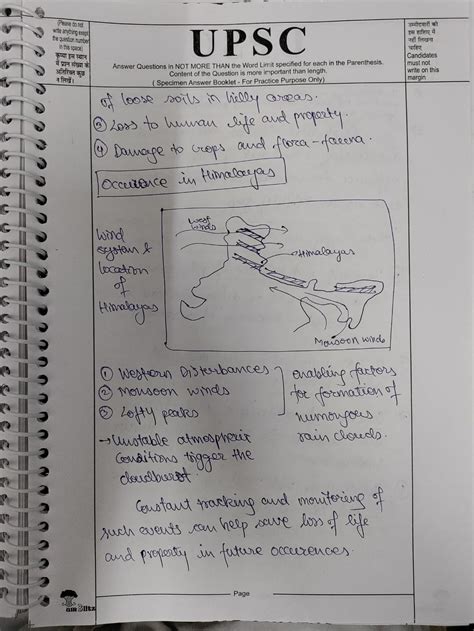 (Please do not
write anything except
the question number
in this space)
कृपया इस स्थान
में प्रश्न संख्या के
अतिरिक्त कुछ
न लिखें।
UPSC
Answer Questions in NOT MORE THAN the Word Limit specified for each in the Parenthesis.
Content of the Question is more important than length.
( Specimen Answer Booklet - For Practice Purpose Only )
उम्मीदवारों को
इस हाशिए में
नहीं लिखना
चाहिए
Candidates
must not
write on this
margin
of loose soils in hilly areas.
③ Loss to human life and property.
④ Damage to crops and flora-fauna.
Occurence in Himalayas
Wind
system &
location
of
Himalayas
West
winds
Himalayas
Monsoon winds
① Western Disturbances
② Monsoon winds
③ Lofty peaks
enabling factors
for formation of
rain clouds.
→ Unstable atmospheric
conditions trigger the
cloudburst
Constant tracking and monitoring of
such events can help save loss of life
and property in future occurences.
Page